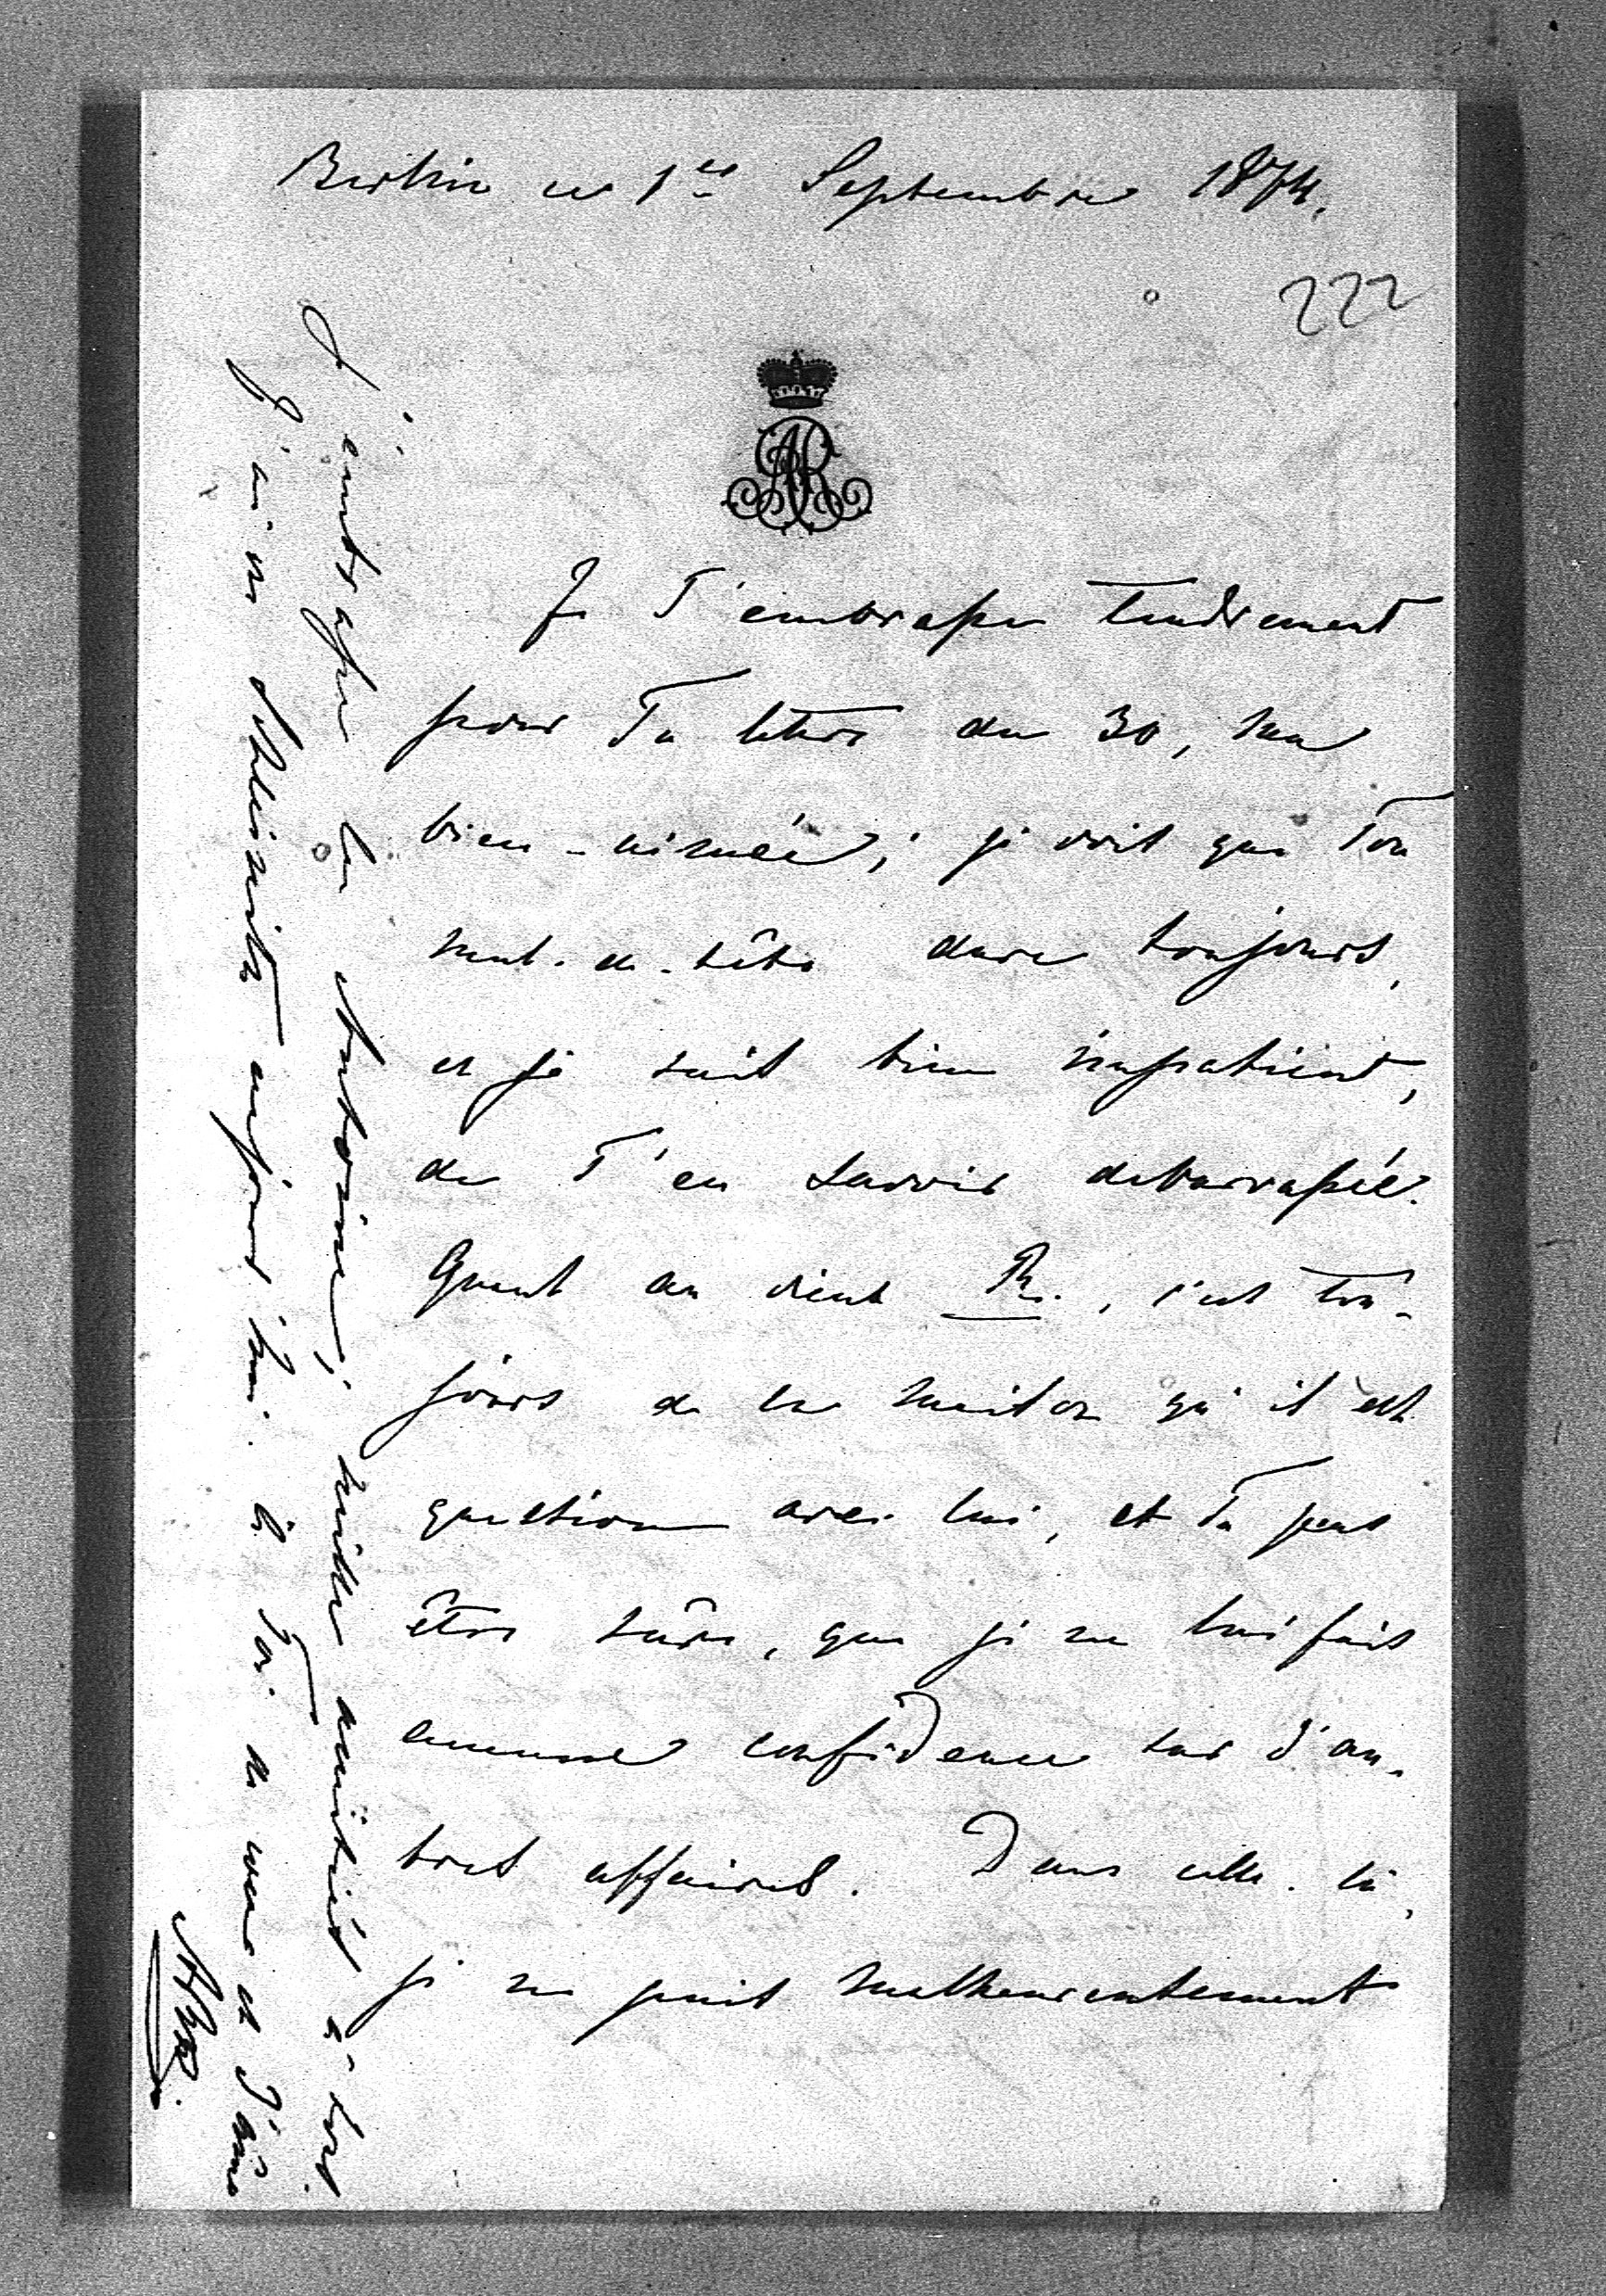 Berlin ce 1er Septembre 1874.
222
AR
Je T'embrasse tendrement
pour Ta lettre du 30, ma
bien-aimée; je vois que Ton
mal-de-tête dure toujours,
et je suis bien impatient,
de T'en savoir debarrassée.
Quant au vieux Th., c'est tou-
jours de la maison qu'il est
question avec lui, et Tu peux
être sûre, que je ne lui fais
aucune confidence sur d'au-
tres affaires. Dans celle-là,
je ne puis malheureusement
J'embrasse la Antoine; mille amitiés à tous.
J'ai vu aujourd'hui. à Toi de cœur et d'âme